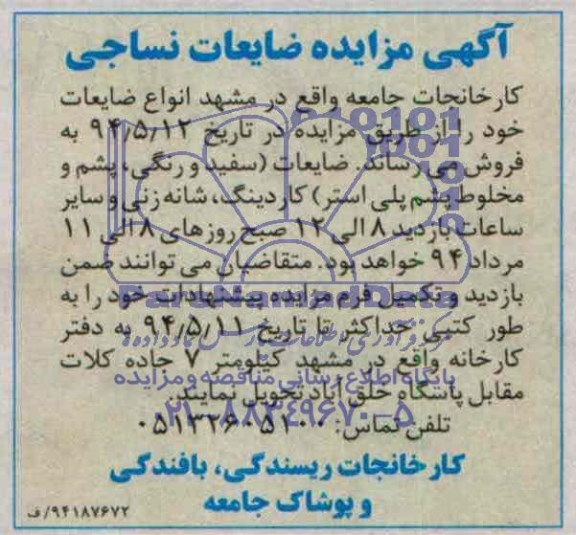 آگهی مزایده ضایعات نساجی
کارخانجات جامعه واقع در مشهد انواع ضایعات
خود را از طریق مزایده در تاریخ ۹۴٫۵٫۱۲ به
فروش می رساند. ضایعات (سفید و رنگی، پشم و
مخلوط پشم پلی استر) کاردینگ، شانه زنی و سایر
ساعات بازدید ۸ الی ۱۲ صبح روزهای ۸ الی ۱۱
مرداد ۹۴ خواهد بود. متقاضیان می توانند ضمن
بازدید و تکمیل فرم مزایده پیشنهادات خود را به
طور کتبی حداکثر تا تاریخ ۹۴٫۵٫۱۱ به دفتر
کارخانه واقع در مشهد کیلومتر ۷ جاده کلات
مقابل پاسگاه خلق آباد تحویل نمایند.
تلفن تماس: ۰۵۱۳۲۶۰۵۱۰۰
کارخانجات ریسندگی، بافندگی
و پوشاک جامعه
۹۴۱۸۷۶۷۲/ف
ParsNamadData
پایگاه اطلاع رسانی مناقصه و مزایده
۰۲۱-۸۸۳۴۹۶۷۰-۵